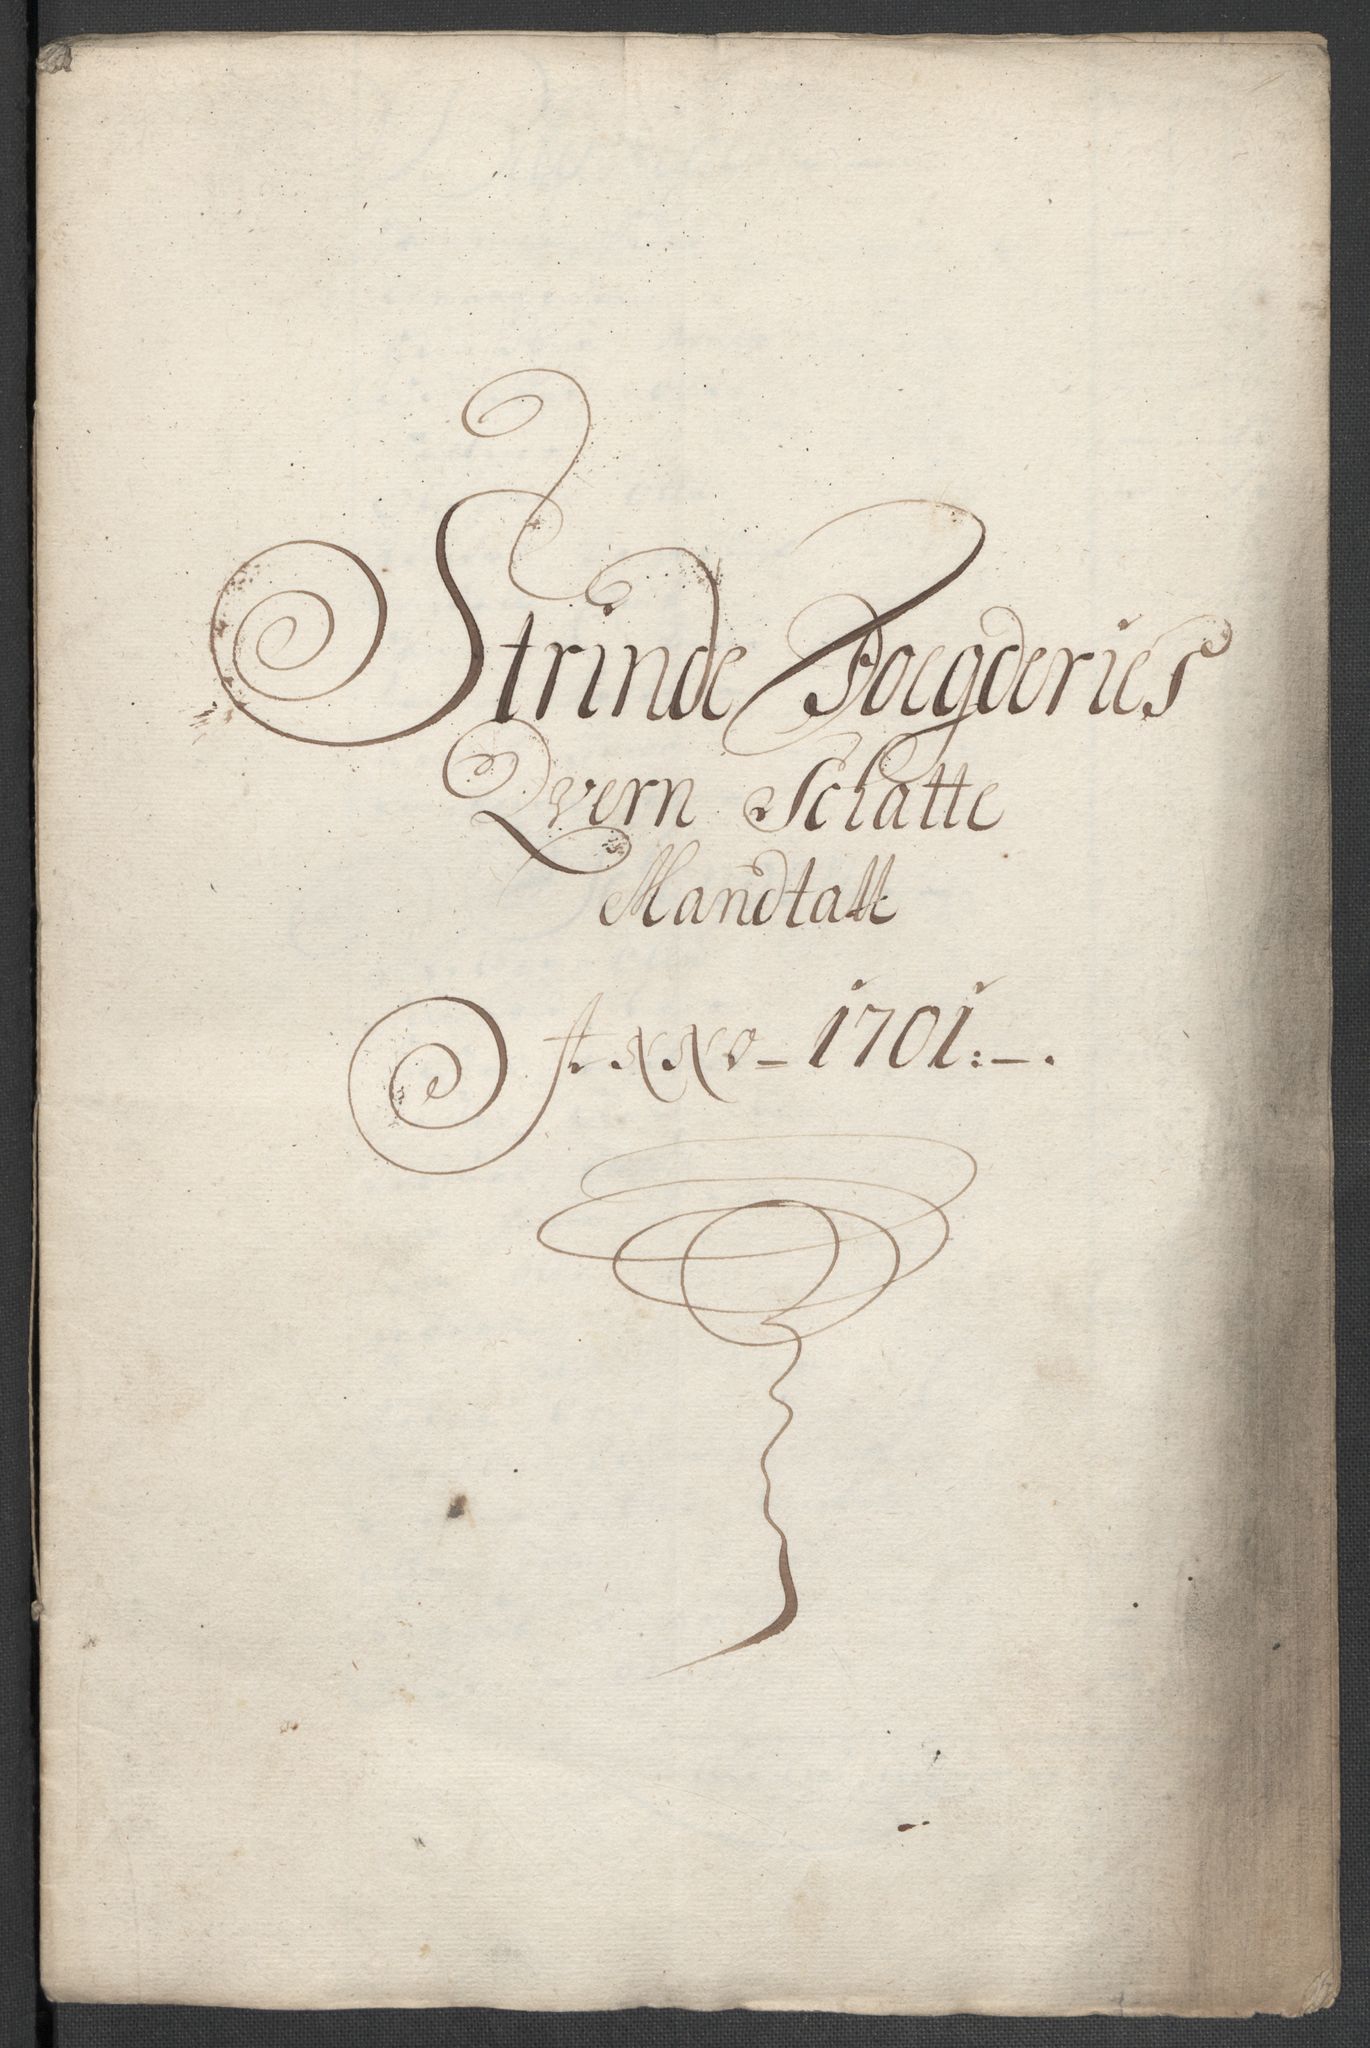 Strinde Foegderies
Qvern Schatte
Mandtall
Anno 1701:-.